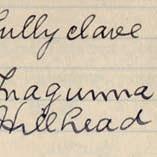 Gullyclave
Inagunna
Hillhead